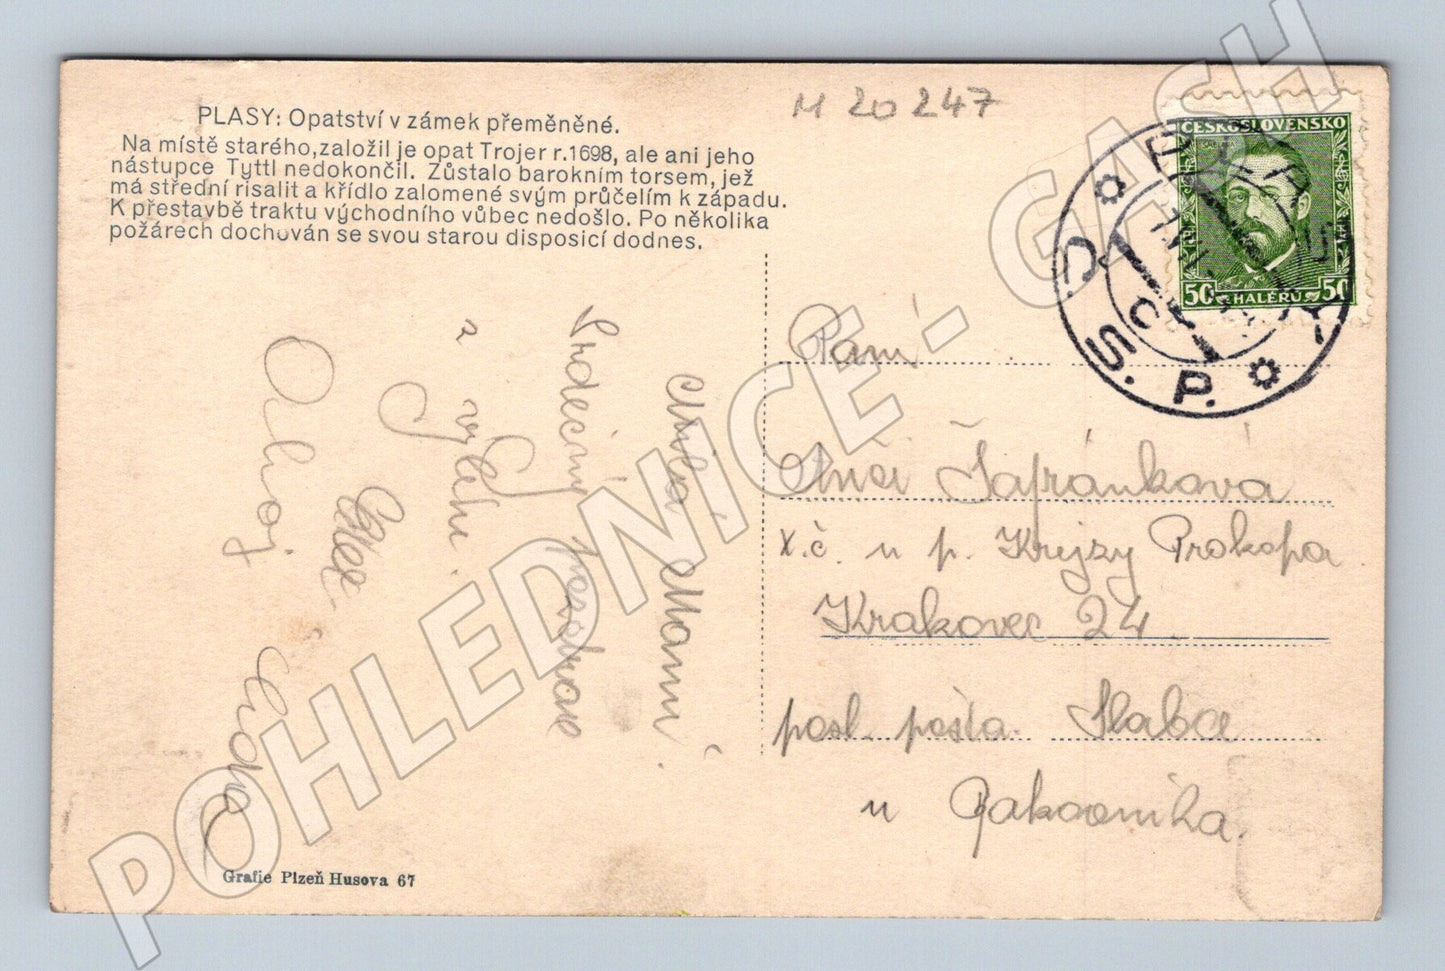 PLASY: Opatství v zámek přeměněné.
Na místě starého,založil je opat Trojer r.1698, ale ani jeho
nástupce Tyttl nedokončil. Zůstalo barokním torsem, jež
má střední risalit a křídlo zalomené svým průčelím k západu.
K přestavbě traktu východního vůbec nedošlo. Po několika
požárech dochován se svou starou disposicí dodnes.
M 20 247
ČESKOSLOVENSKO
50 HALÉŘŮ 50
PLASY
Č. S. P.
Milá Mami
Srdečný pozdrav
z výletu
Ahoj
Paní
Šafránková
x.č. u p. Krejzy Prokopa
Krakovec 24
posl. pošta. Slabce
u Rakovníka.
Grafie Plzeň Husova 67
POHLEDNICE - GASH